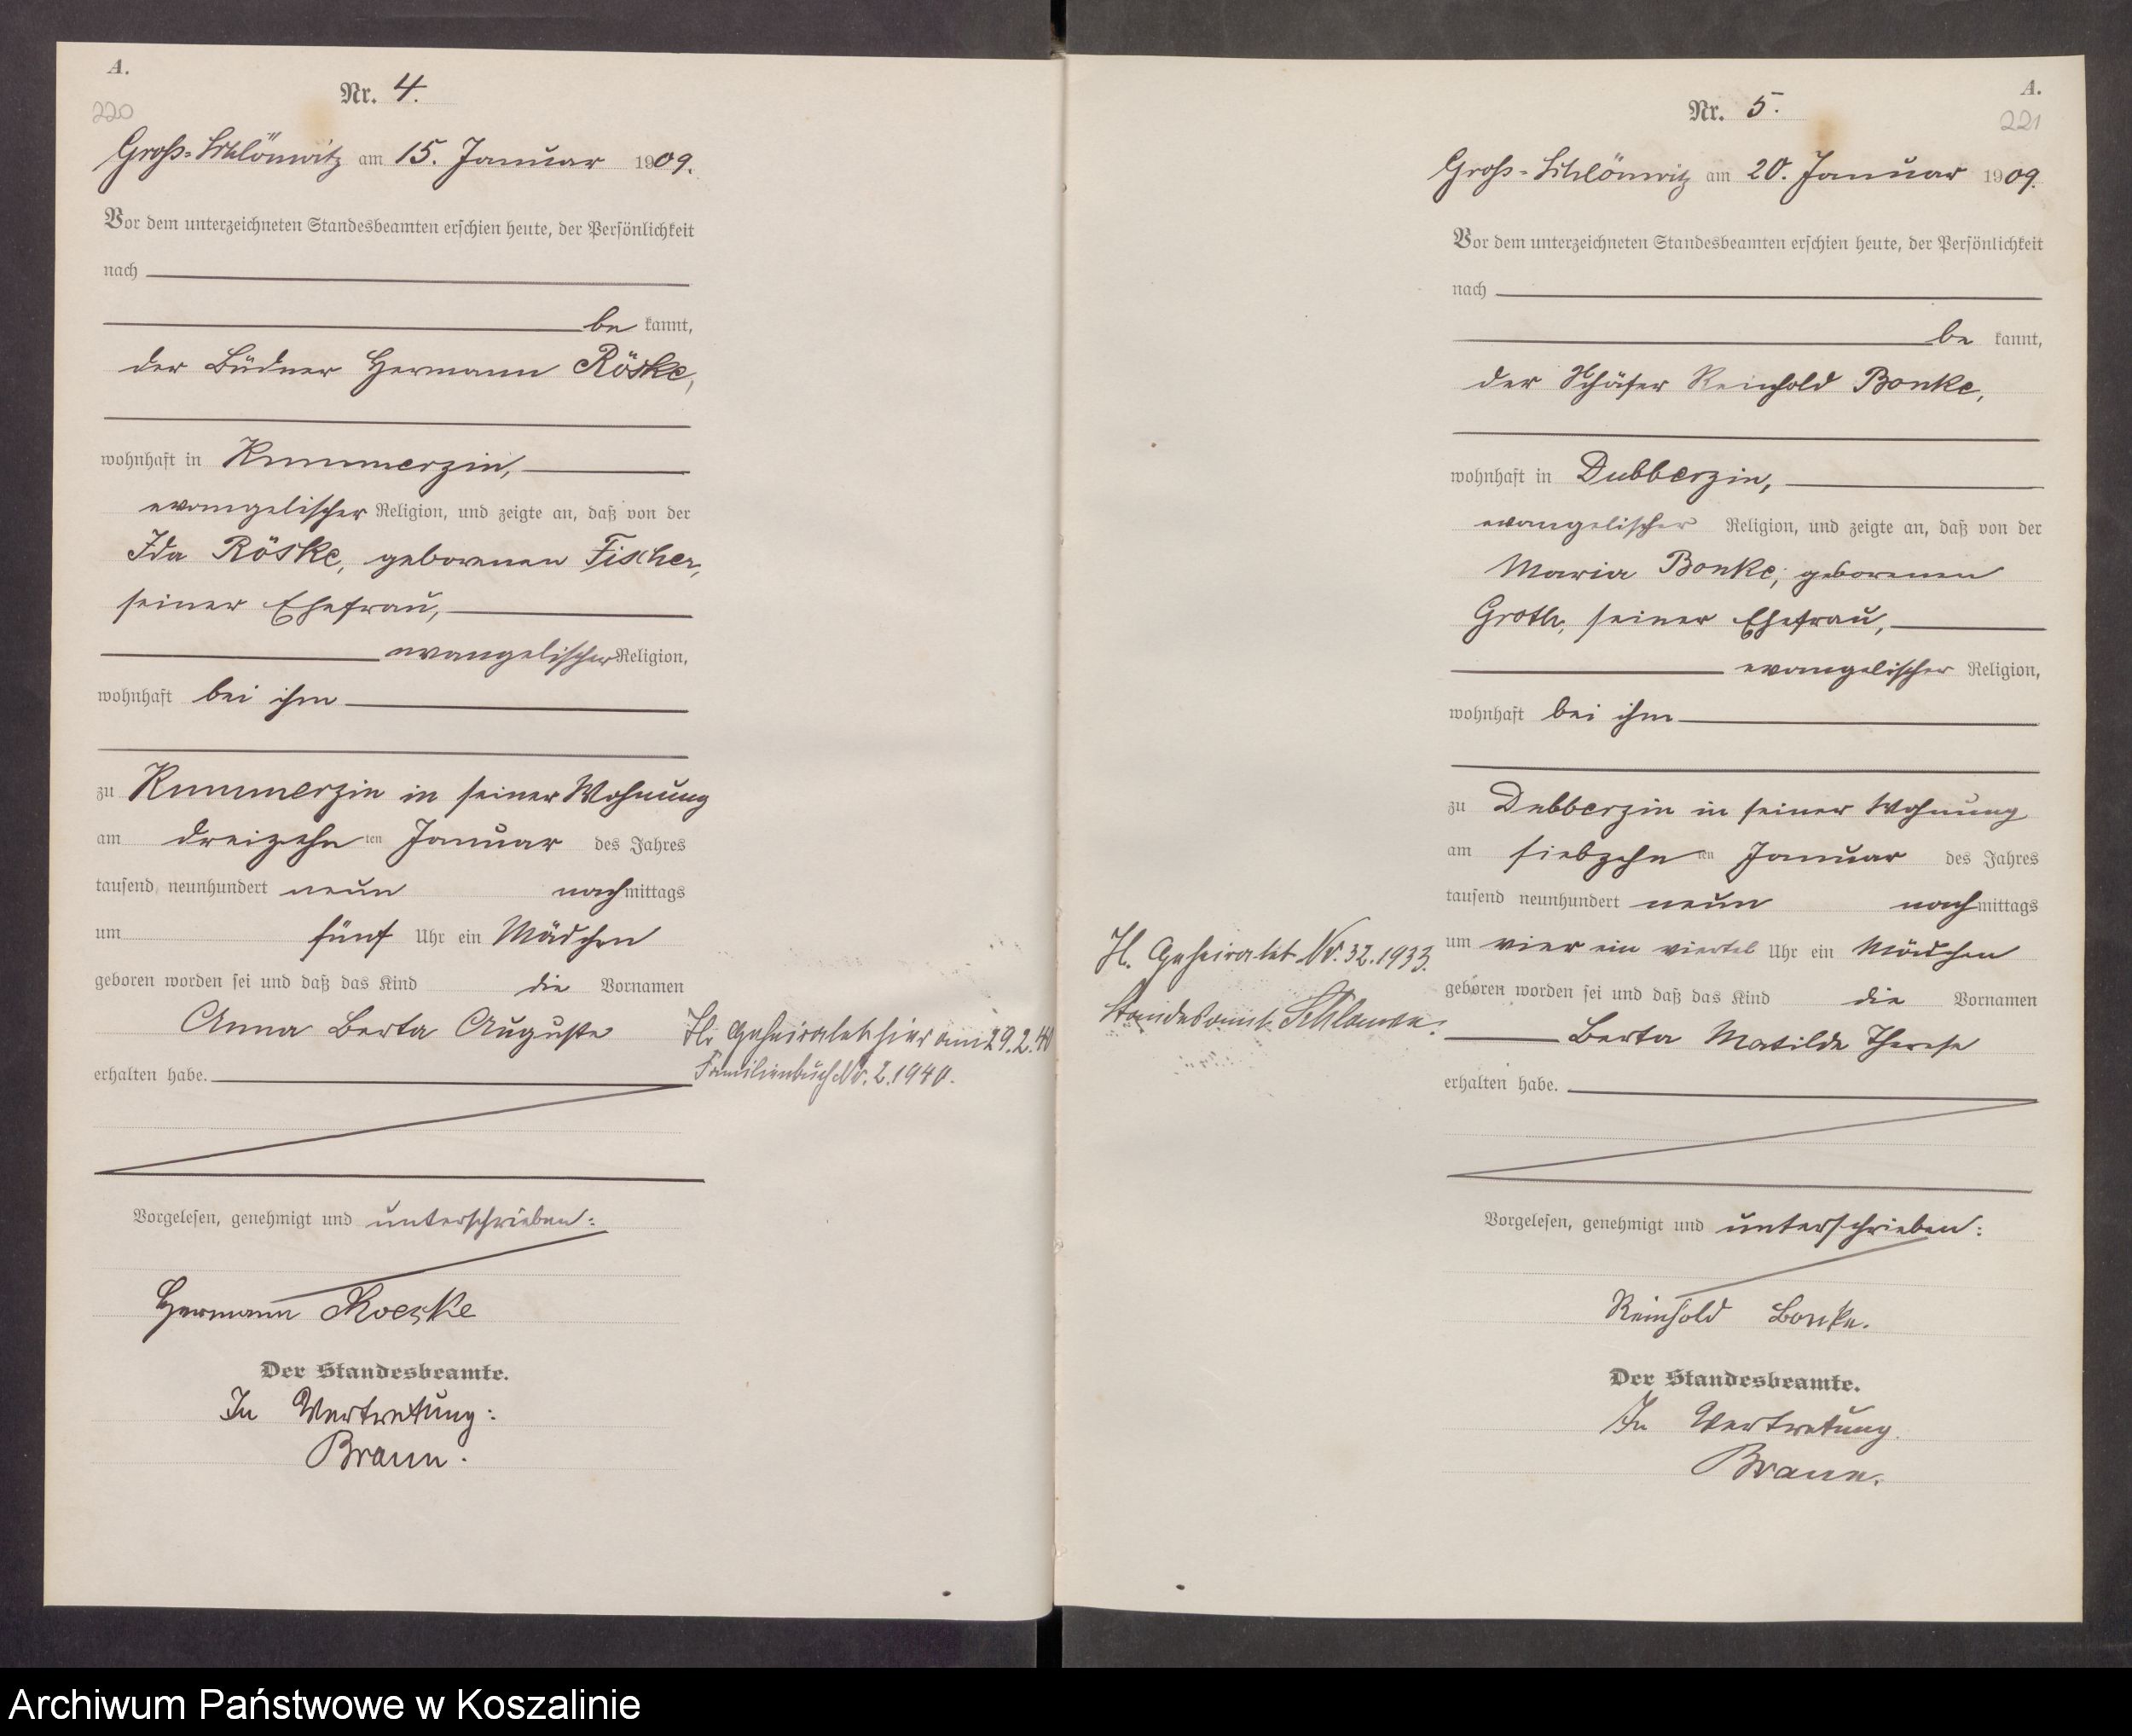 A.
220
Nr. 4.
Groß-Schlönwitz am 15. Januar 1909.
Vor dem unterzeichneten Standesbeamten erschien heute, der Persönlichkeit
nach
be kannt,
der Büdner Hermann Röske,
wohnhaft in Kummerzin,
evangelischer Religion, und zeigte an, daß von der
Ida Röske, geborenen Fischer,
seiner Ehefrau,
evangelischer Religion,
wohnhaft bei ihm
zu Kummerzin in seiner Wohnung
am dreizehn ten Januar des Jahres
tausend neunhundert neun nachmittags
um fünf Uhr ein Mädchen
geboren worden sei und daß das Kind die Vornamen
Anna Berta Auguste
erhalten habe.
Geheiratet hier am 29.2.40
Familienbuch Nr. 2.1940.
Vorgelesen, genehmigt und unterschrieben:
Hermann Roeske
Der Standesbeamte.
In Vertretung:
Braun.
A.
221
Nr. 5.
Groß-Schlönwitz am 20. Januar 1909.
Vor dem unterzeichneten Standesbeamten erschien heute, der Persönlichkeit
nach
be kannt,
der Schäfer Reinhold Bonke,
wohnhaft in Dubberzin,
evangelischer Religion, und zeigte an, daß von der
Maria Bonke, geborenen
Groth, seiner Ehefrau,
evangelischer Religion,
wohnhaft bei ihm
zu Dubberzin in seiner Wohnung
am siebzehn ten Januar des Jahres
tausend neunhundert neun nachmittags
um vier ein viertel Uhr ein Mädchen
geboren worden sei und daß das Kind die Vornamen
Berta Matilde Therese
erhalten habe.
Geheiratet Nr. 32.1933.
Standesamt Schlawe.
Vorgelesen, genehmigt und unterschrieben:
Reinhold Bonke.
Der Standesbeamte.
In Vertretung.
Braun.
Archiwum Państwowe w Koszalinie